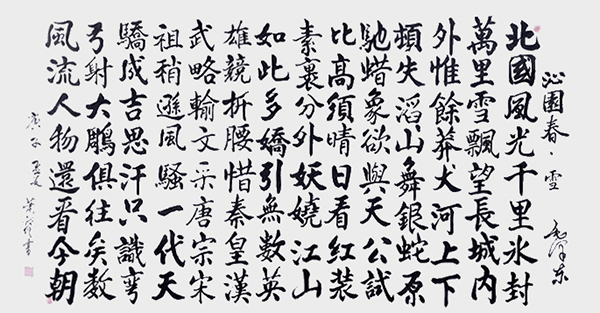 沁園春·雪 毛澤东
北國風光千里冰封
萬里雪飄望長城内
外惟餘莽大河上下
頓失滔山舞銀蛇原
馳蜡象欲與天公試
比高須晴日看紅装
素裹分外妖嬈江山
如此多嬌引無数英
雄競折腰惜秦皇漢
武略輸文采唐宗宋
祖稍遜風騷一代天
驕成吉思汗只識彎
弓射大鵰俱往矣数
風流人物還看今朝
庚子